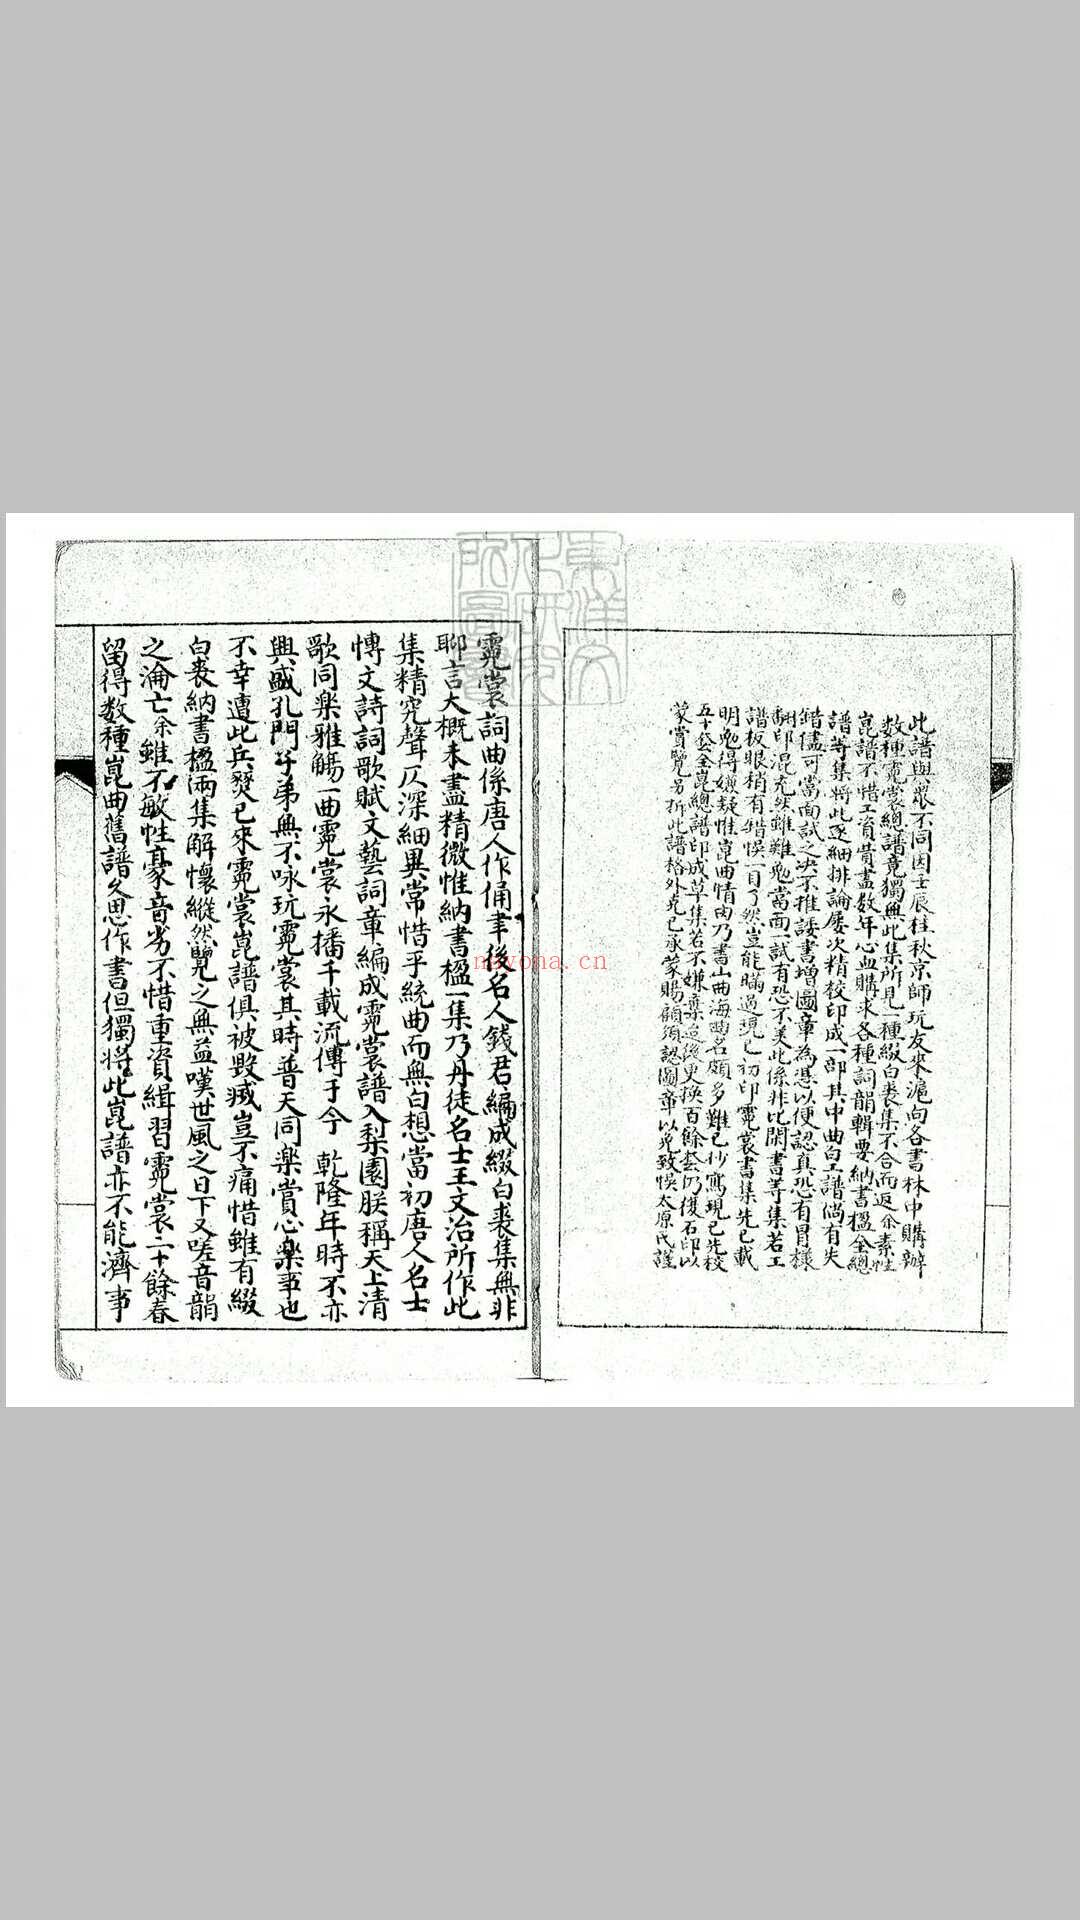 此譜與衆不同因壬辰桂秋京師玩友來滬向各書林中購辦
数種霓裳總譜竟獨無此集所見一種綴白裘集不合而返余素性
崑譜不惜工資費盡数年心血購求各種詞韻輯要納書楹全總
譜等集將此逐細排論屡次精校印成一部其中曲白工譜倘有失
錯儘可當面試之决不推諉書增圖章為憑以便認真恐有冒樣
翻印混充然雖難免當面一試有恐不美此係非比閑書等集若工
譜板眼稍有錯悞一目了然豈能瞞過現已初印霓裳書集先已載
明免得嫌疑惟崑曲情由乃書山曲海齣名頗多難已抄寫現已先校
五十套全崑總譜印成草集若不嫌棄迨後更換百餘套仍復石印以
蒙賞覽另拆此譜格外克已承蒙賜顧須認圖章以免致悞太原氏謹
霓裳詞曲係唐人作俑聿後名人錢君編成綴白裘集無非
聊言大概未盡精微惟納書楹一集乃丹徒名士王文治所作此
集精究聲仄深細異常惜乎統曲而無白想當初唐人名士
慱文詩詞歌賦文藝詞章編成霓裳譜入梨園朕稱天上清
歌同楽雅觴一曲霓裳永播千載流傳于今 乾隆年時不亦
興盛孔門子弟無不咏玩霓裳其時普天同楽賞心楽事也
不幸遭此兵燹已來霓裳崑譜俱被毀滅豈不痛惜雖有綴
白裘納書楹兩集解懷縱然覽之無益嘆世風之日下又嗟音韻
之淪亡余雖不敏性豪音劣不惜重資緝習霓裳二十餘春
留得数種崑曲舊譜久思作書但獨將此崑譜亦不能濟事
東洋文
化研究
所圖書
nayona.cn